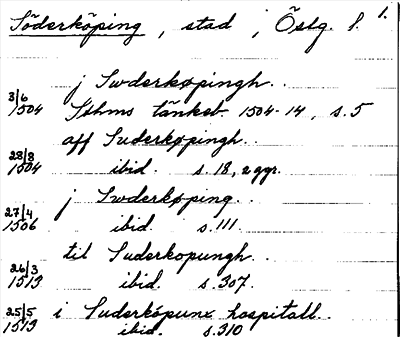 Söderköping, stad, Östg. l. 1.
j Swderkøpingh..
3/6 1504 Sthms tänkeb. 1504-14, s. 5
aff Suderkøpingh..
28/8 1504 ibid. s. 18, 2 ggr.
j Swderkøping..
27/4 1506 ibid. s. 111.
til Suderkopungh..
26/3 1513 ibid. s. 307.
25/5 1513 i Suderkópunx hospitall..
ibid. s. 310